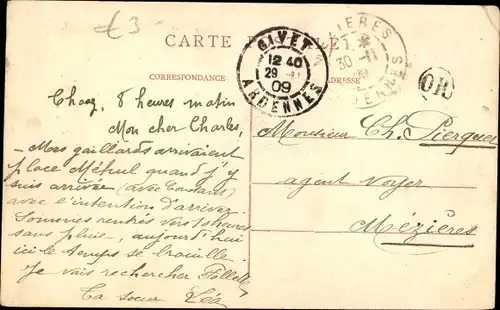 £3
CARTE POSTALE
CORRESPONDANCE
ADRESSE
GIVET
12 40
29 - 11
09
ARDENNES
MEZIERES
30 - 11
ARDENNES
OR
8 heures matin
Mon cher Charles,
Mes gaillards arrivaient
place Méhul quand j'y
suis arrivée (avec Constant)
avec l'intention d'arriver.
Sommes rentrés vers 10 heures
sans pluie, aujourd'hui
ici le temps se brouille.
Je vais rechercher Follette
Ta soeur Léa
Monsieur Ch. Pierquet
agent voyer
Mézières